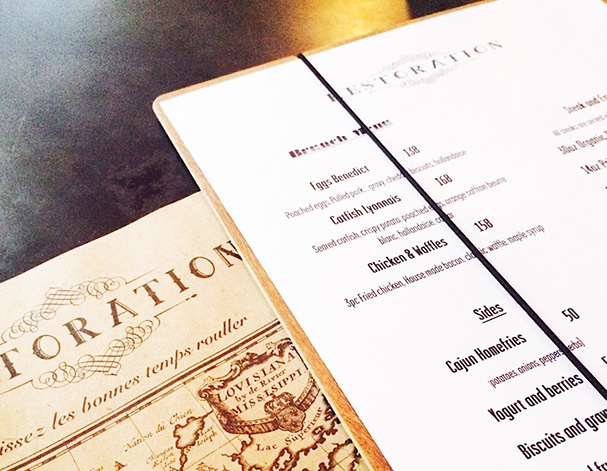 ESTORATION
Brunch
Eggs Benedict 138
Poached eggs, Pulled pork, gravy, biscuits, hollandaise
Catfish Lyonnais 168
Seared catfish, crispy potato, poached orange saffron beurre
blanc, hollandaise,
Chicken & Waffles 158
3pc Fried chicken, House made bacon, waffle, maple syrup
Sides
Cajun Homefries 50
(potatoes, onions, peppers,
Yogurt and berries
Biscuits and
Steak and
All steaks are served
30oz Organic,
14oz
TORATION
les bonnes temps rouller
LOVISIANA
by de Rivier
MISSISSIPPI
Nation du Chicu
Lac Superieur